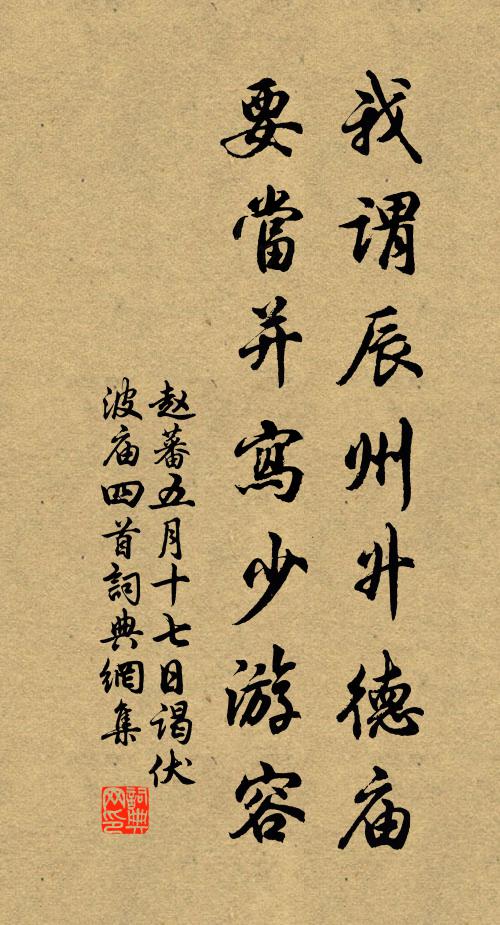 我谓辰州升德庙
要當并寫少游容
赵蕃五月十七日谒伏
波庙四首詞典網集
詞典
网印